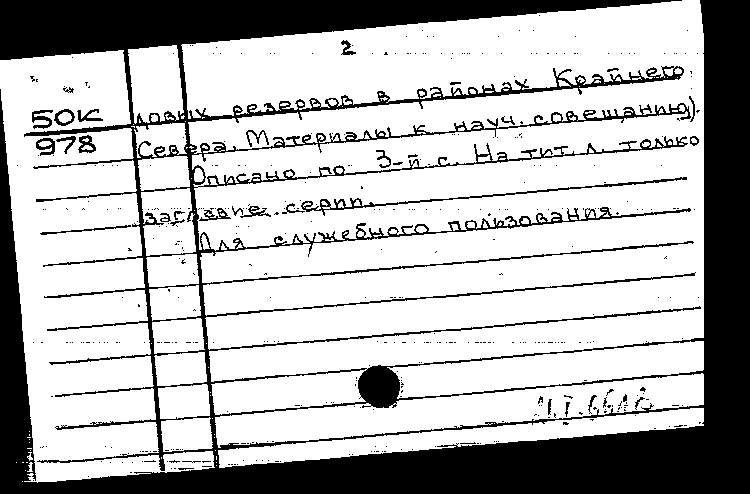 2
50К довых резервов в районах Крайнего
978 Севера. Материалы к науч. совещанию).
Описано по 3-й с. На тит. л. только
заглавие серии.
Для служебного пользования.